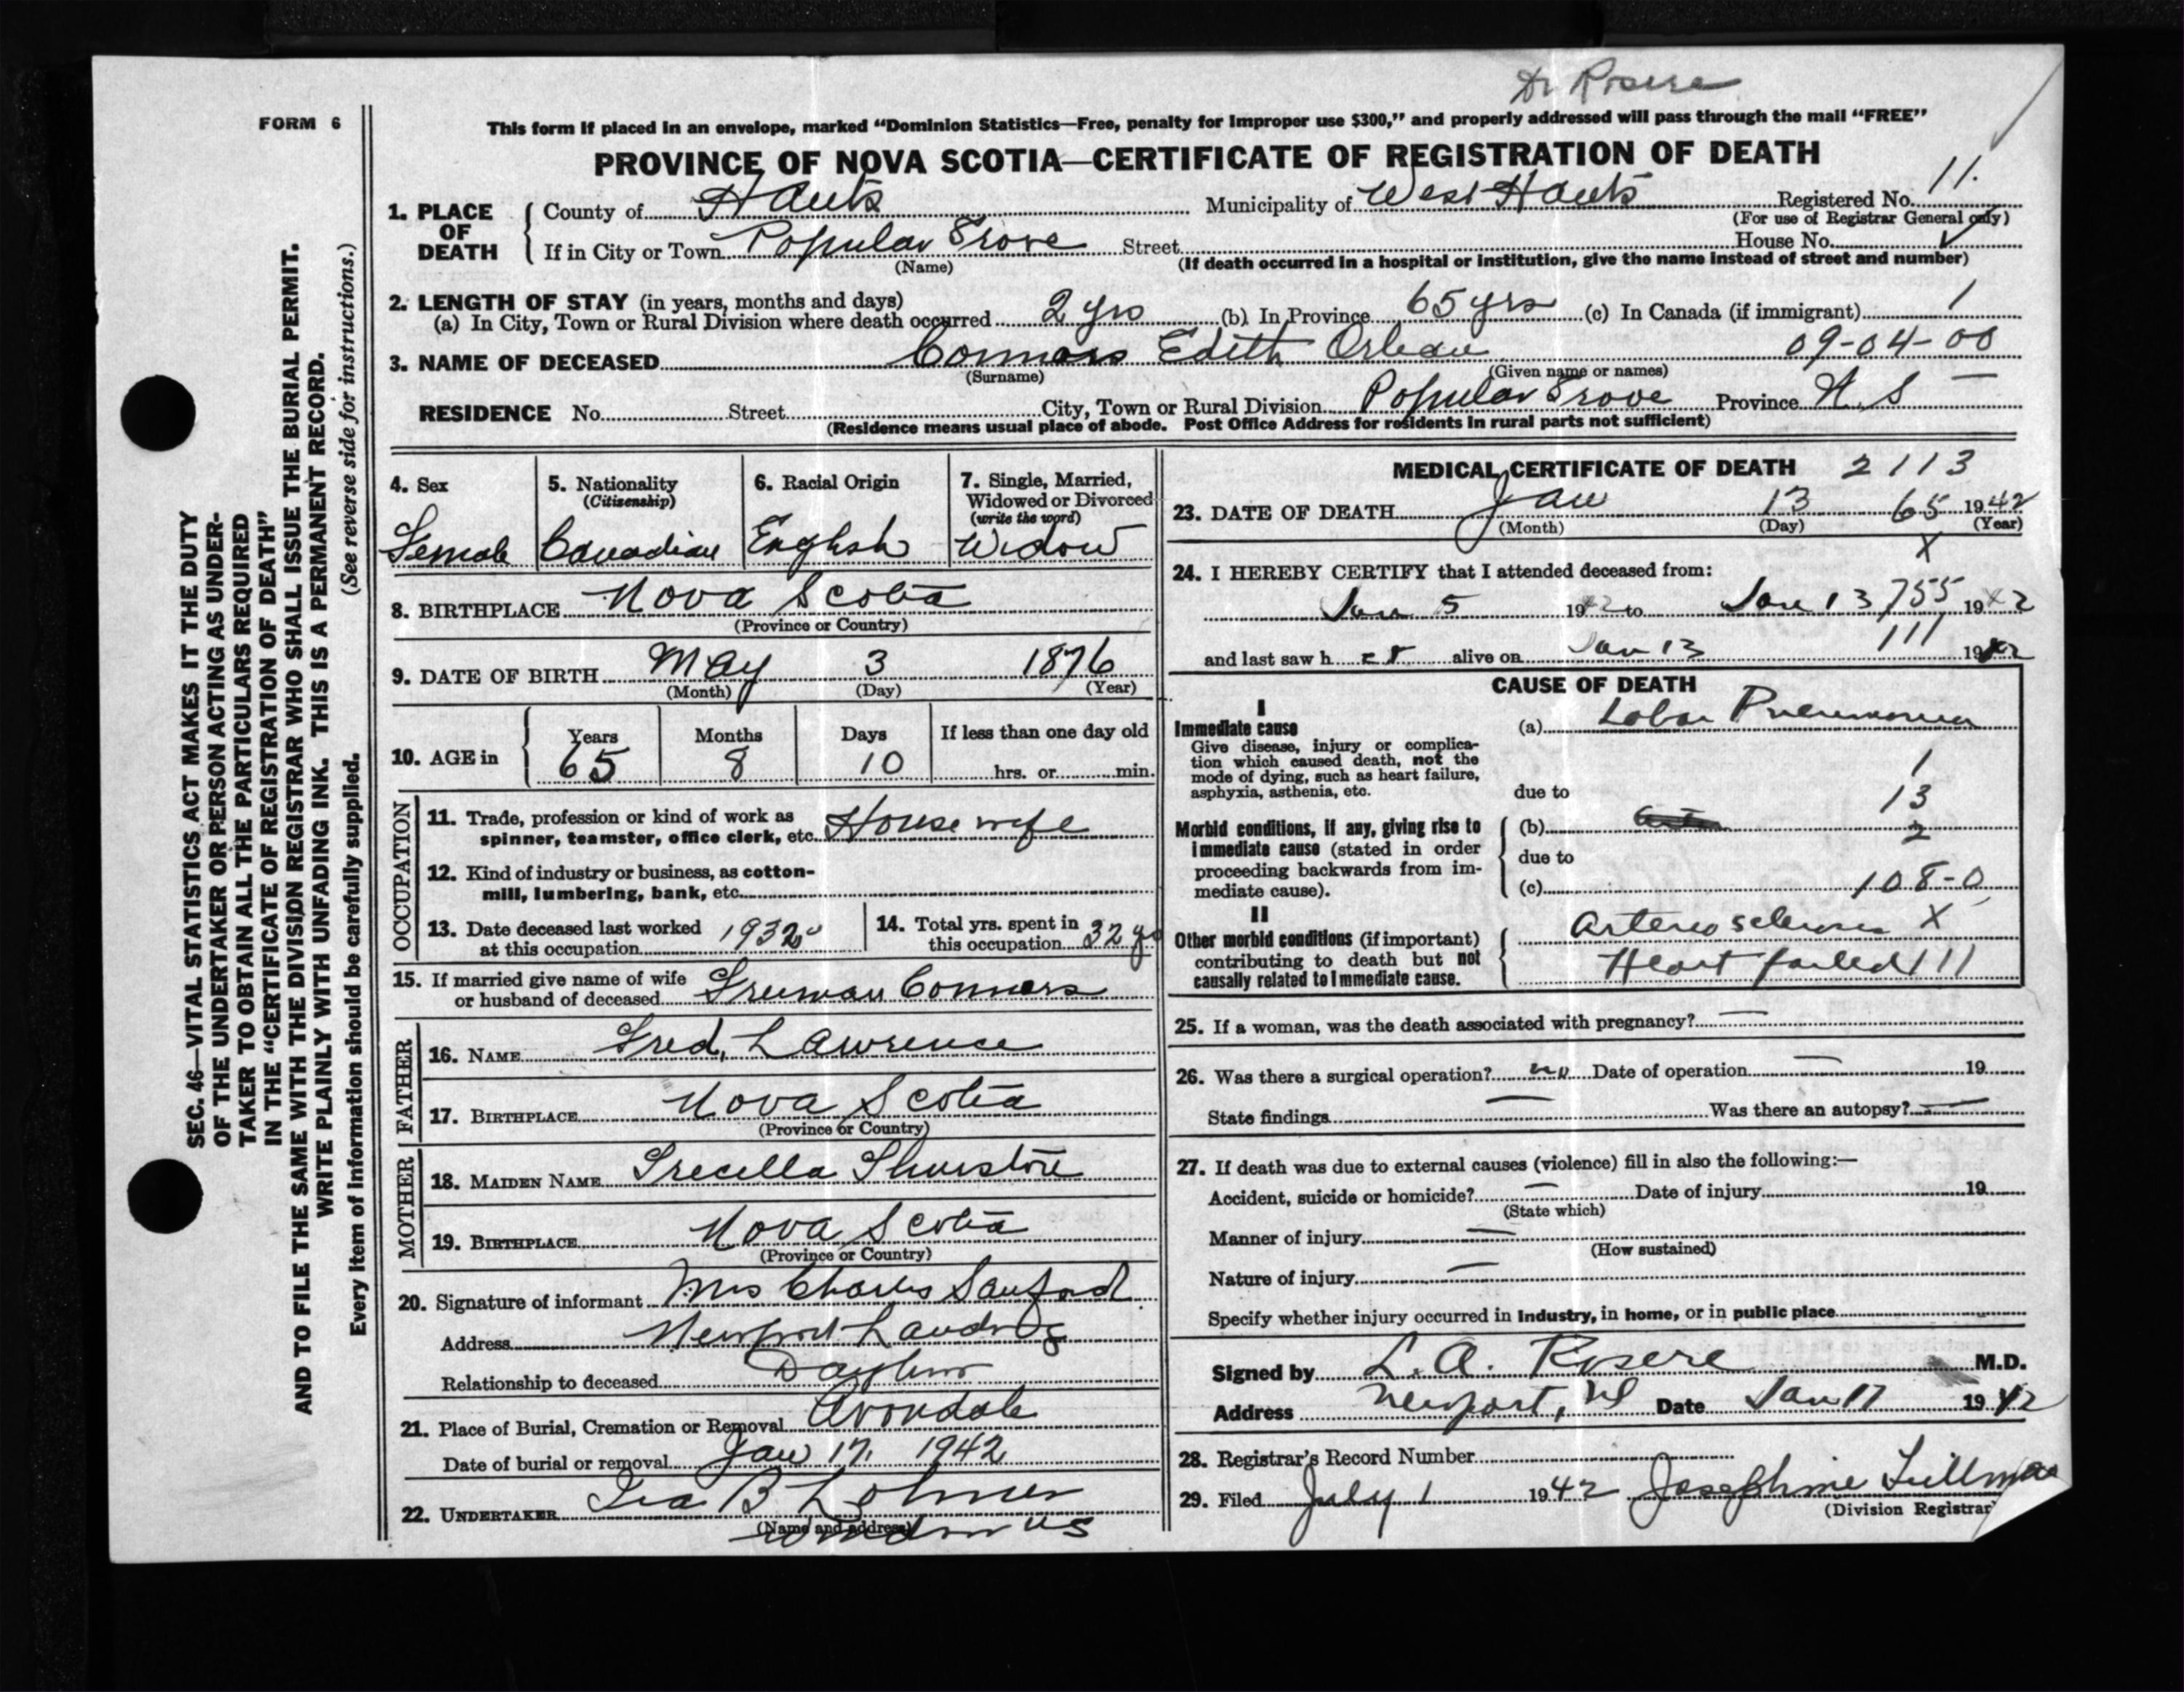 Dr Rosere
FORM 6
This form if placed in an envelope, marked “Dominion Statistics—Free, penalty for improper use $300,” and properly addressed will pass through the mail “FREE”
PROVINCE OF NOVA SCOTIA—CERTIFICATE OF REGISTRATION OF DEATH
1. PLACE OF DEATH County of Hants Municipality of West Hants Registered No. 11.
(For use of Registrar General only)
If in City or Town Popular Grove Street House No.
(Name) (If death occurred in a hospital or institution, give the name instead of street and number)
2. LENGTH OF STAY (in years, months and days)
(a) In City, Town or Rural Division where death occurred 2 yrs (b) In Province 65 yrs (c) In Canada (if immigrant) /
3. NAME OF DECEASED Connors Edith 09-04-00
(Surname) (Given name or names)
RESIDENCE No. Street City, Town or Rural Division Popular Grove Province N. S —
(Residence means usual place of abode. Post Office Address for residents in rural parts not sufficient)
SEC. 46—VITAL STATISTICS ACT MAKES IT THE DUTY
OF THE UNDERTAKER OR PERSON ACTING AS UNDER-
TAKER TO OBTAIN ALL THE PARTICULARS REQUIRED
IN THE “CERTIFICATE OF REGISTRATION OF DEATH”
AND TO FILE THE SAME WITH THE DIVISION REGISTRAR WHO SHALL ISSUE THE BURIAL PERMIT.
WRITE PLAINLY WITH UNFADING INK. THIS IS A PERMANENT RECORD.
Every item of information should be carefully supplied. (See reverse side for instructions.)
4. Sex 5. Nationality 6. Racial Origin 7. Single, Married,
(Citizenship) Widowed or Divorced
(write the word)
Female Canadian English Widow
8. BIRTHPLACE Nova Scotia
(Province or Country)
9. DATE OF BIRTH May 3 1876
(Month) (Day) (Year)
10. AGE in Years Months Days If less than one day old
65 8 10 hrs. or min.
OCCUPATION
11. Trade, profession or kind of work as
spinner, teamster, office clerk, etc. House wife
12. Kind of industry or business, as cotton-
mill, lumbering, bank, etc.
13. Date deceased last worked 14. Total yrs. spent in
at this occupation 1932 this occupation 32 yrs
15. If married give name of wife
or husband of deceased Freeman Connors
FATHER
16. NAME Fred, Lawrence
17. BIRTHPLACE Nova Scotia
(Province or Country)
MOTHER
18. MAIDEN NAME
19. BIRTHPLACE Nova Scotia
(Province or Country)
20. Signature of informant Mrs Charles Sanford
Address Newport Landing
Relationship to deceased
21. Place of Burial, Cremation or Removal Avondale
Date of burial or removal Jan 17, 1942
22. UNDERTAKER Ira B
(Name and address)
MEDICAL CERTIFICATE OF DEATH 2113
23. DATE OF DEATH Jan 13 65 1942
(Month) (Day) (Year)
X
24. I HEREBY CERTIFY that I attended deceased from:
Jan 5 1942 to Jan 13 755 1942
and last saw h er alive on Jan 13 111 1942
CAUSE OF DEATH
I
Immediate cause (a) Lobar Pneumonia
Give disease, injury or complica-
tion which caused death, not the
mode of dying, such as heart failure,
asphyxia, asthenia, etc. due to 1
13
Morbid conditions, if any, giving rise to (b) 2
immediate cause (stated in order due to
proceeding backwards from im-
mediate cause). (c) 108-0
II
Other morbid conditions (if important) X
contributing to death but not Heart failed 111
causally related to immediate cause.
25. If a woman, was the death associated with pregnancy? —
26. Was there a surgical operation? no Date of operation — 19
State findings — Was there an autopsy? —
27. If death was due to external causes (violence) fill in also the following:—
Accident, suicide or homicide? — Date of injury 19
(State which)
Manner of injury —
(How sustained)
Nature of injury —
Specify whether injury occurred in industry, in home, or in public place
Signed by L. A. Rosere M.D.
Address Newport, NS Date Jan 17 1942
28. Registrar's Record Number
29. Filed July 1 1942 Josephine
(Division Registrar)